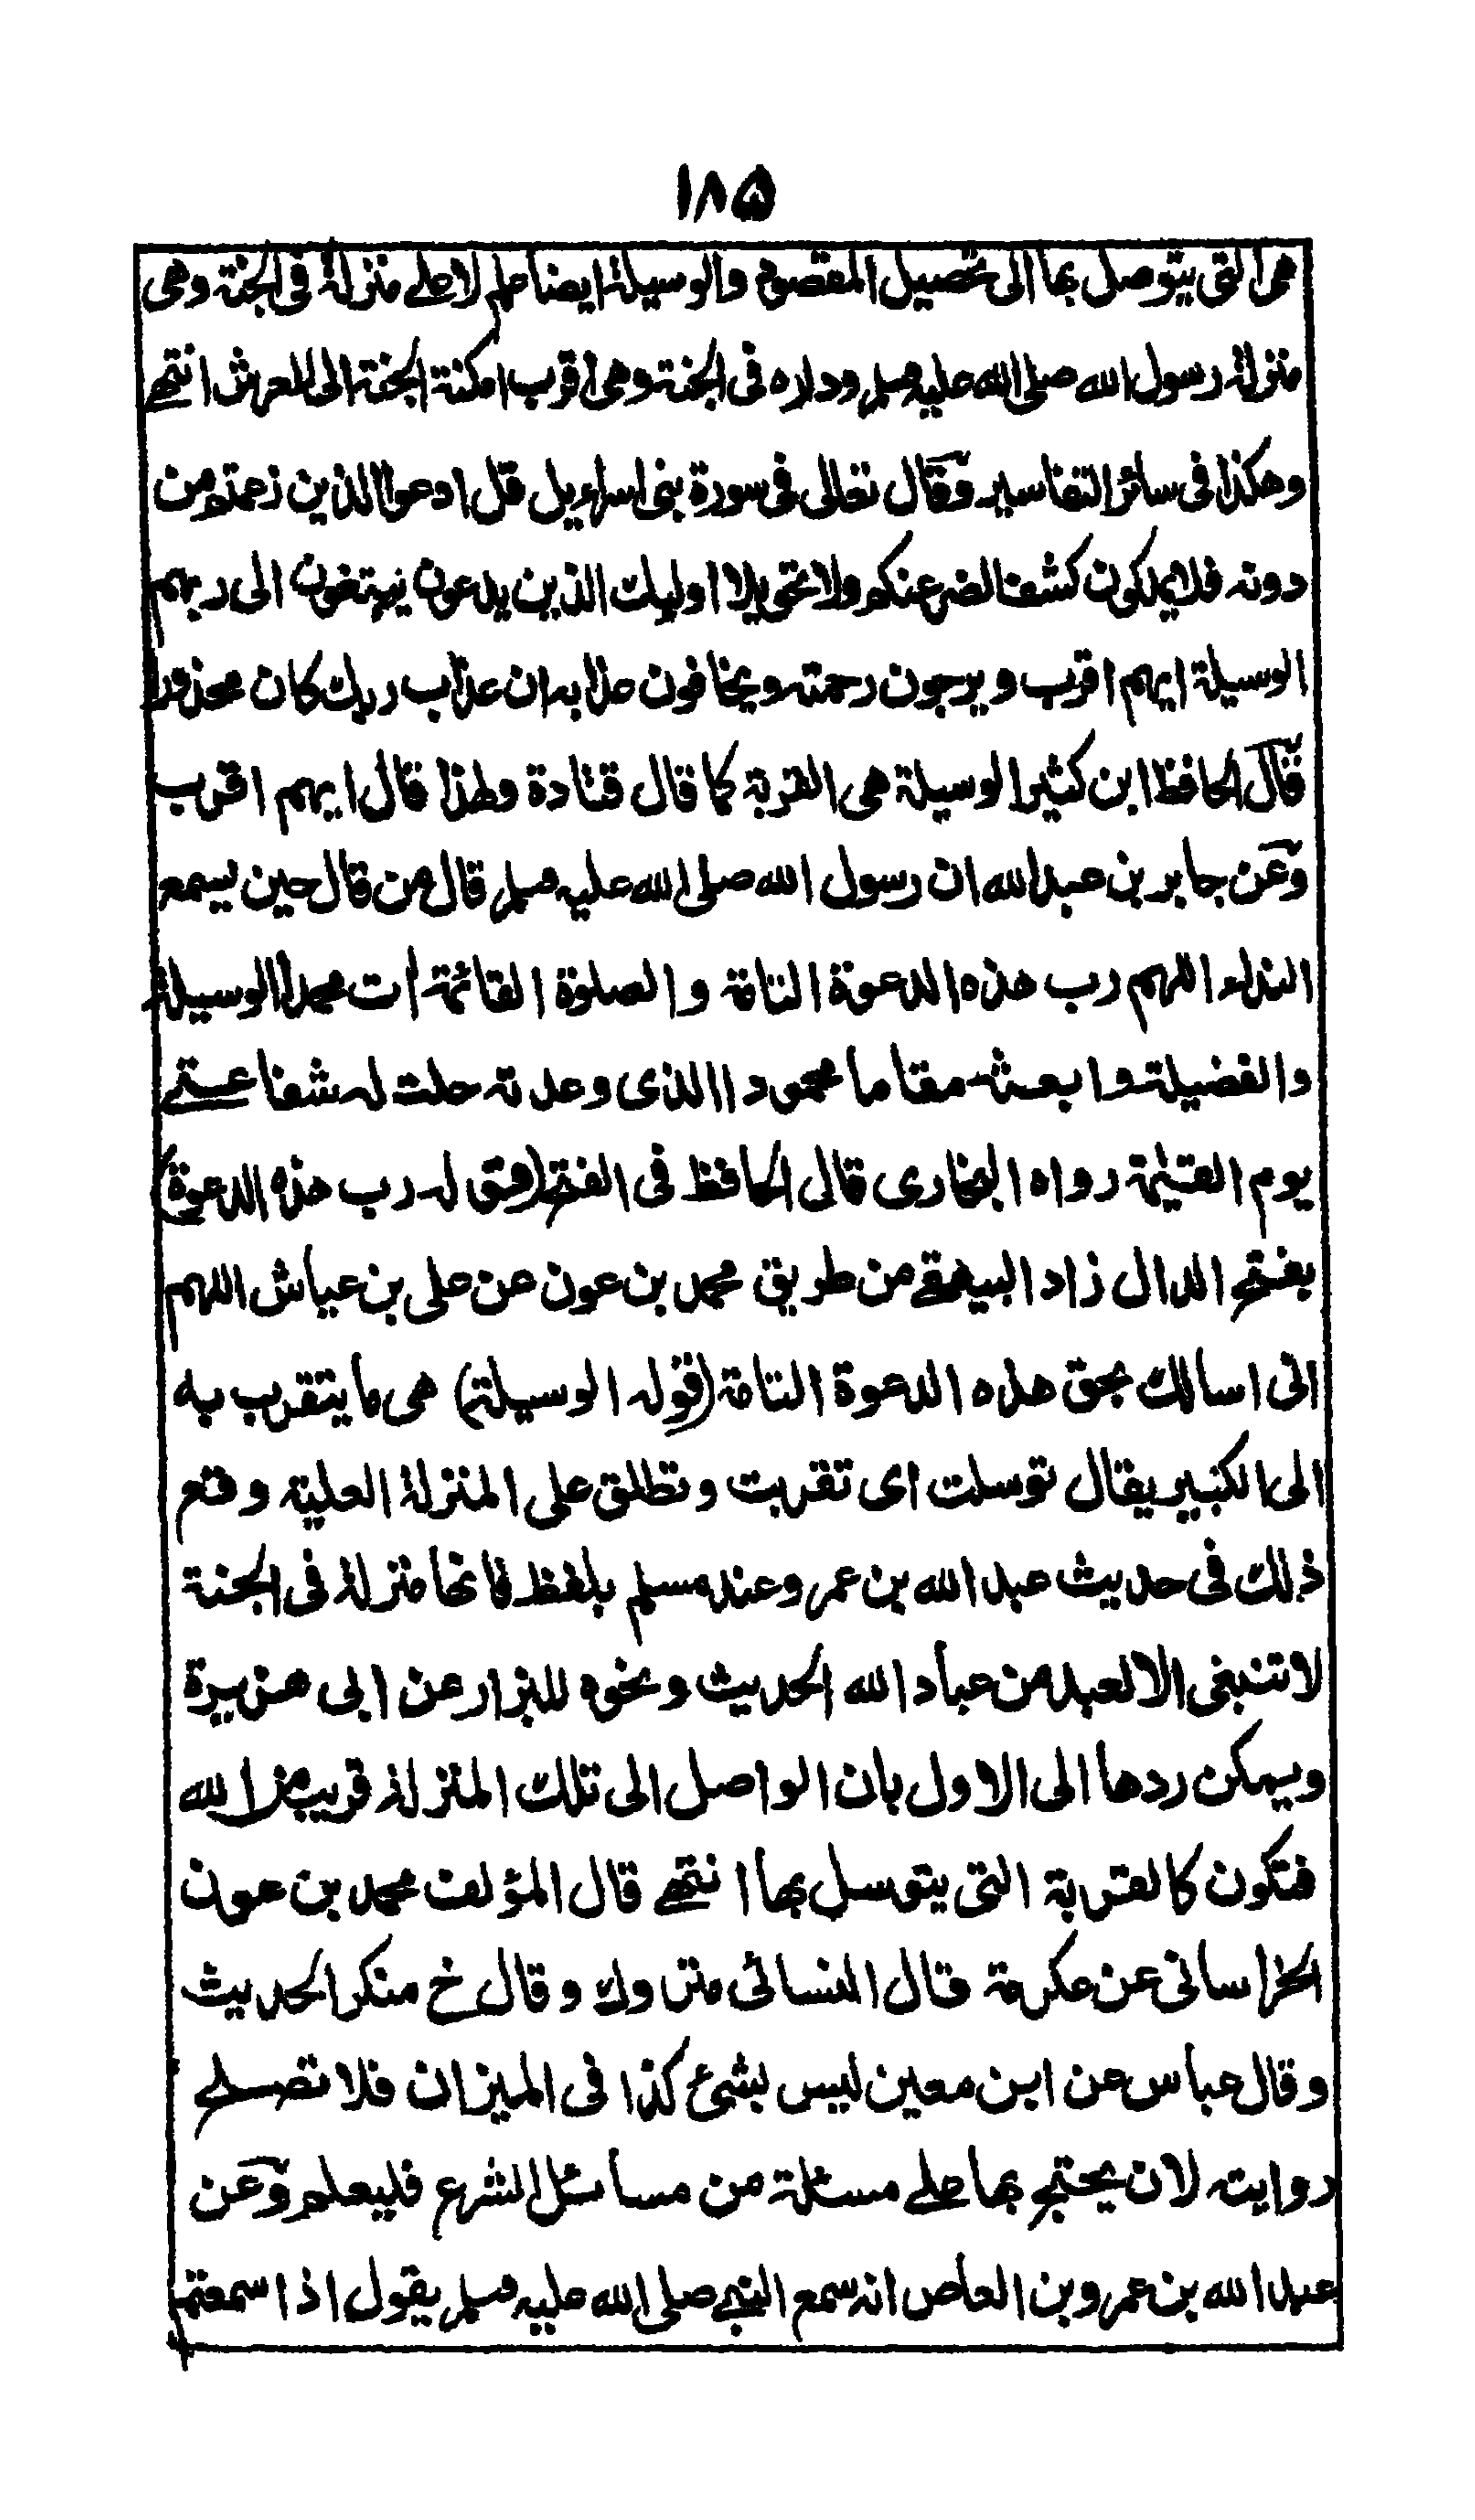 ١٨٥
هي التي يتوصل بها الى تحصيل المقصود والوسيلة ايضا علم لاعلى منزلة في الجنة وهي
منزلة رسول الله صلى الله عليه وسلم وداره في الجنة وهي اقرب امكنة الجنة الى العرش انتهى
وهكذا في سائر التفاسير وقال تعالى في سورة بني اسراءيل قل ادعوا الذين زعمتم من
دونه فلا يملكون كشف الضر عنكم ولا تحويلا اوليك الذين يدعون يبتغون الى ربهم
الوسيلة ايهم اقرب ويرجون رحمته ويخافون عذابه ان عذاب ربك كان محذورا
قال الحافظ ابن كثير الوسيلة هي القربة كما قال قتادة ولهذا قال ايهم اقرب
وعن جابر بن عبد الله ان رسول الله صلى الله عليه وسلم قال من قال حين يسمع
النداء اللهم رب هذه الدعوة التامة والصلوة القائمة ات محمدا الوسيلة
والفضيلة وابعثه مقاما محمود ا الذي وعدته حلت له شفاعتي
يوم القيمة رواه البخاري قال الحافظ في الفتح (قوله رب هذه الدعوة)
بفتح الدال زاد البيهقي من طريق محمد بن عون عن علي بن عياش اللهم
اني اسالك بحق هذه الدعوة التامة (قوله الوسيلة) هي ما يتقرب به
الى الكبير يقال توسلت اي تقربت وتطلق على المنزلة العلية وقع
ذلك في حديث عبد الله بن عمر وعند مسلم بلفظ فانها منزلة في الجنة
لا تنبغي الا لعبد من عباد الله الحديث ونحوه للبزار عن ابي هريرة
ويمكن ردها الى الاول بان الواصل الى تلك المنزلة قريب من الله
فتكون كالقربة التي يتوسل بها انتهى قال المؤلف محمد بن عون
الخراساني عن عكرمة قال النسائي متروك وقال خ منكر الحديث
وقال عباس عن ابن معين ليس بشئ كذا في الميزان فلا تصلح
روايته لان يحتج بها على مسئلة من مسائل الشرع فليعلم وعن
عبد الله بن عمرو بن العاص انه سمع النبي صلى الله عليه وسلم يقول اذا سمعتم